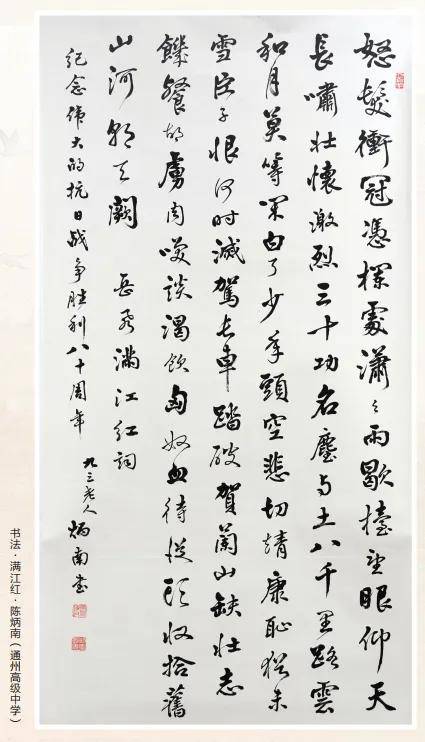 怒髮衝冠憑欄處瀟々雨歇擡望眼仰天
長嘯壯懷激烈三十功名塵与土八千里路雲
和月莫等閑白了少年頭空悲切靖康恥猶未
雪臣子恨何时滅駕长車踏破賀蘭山缺壯志
饑餐胡虜肉笑談渴飲匈奴血待從頭收拾舊
山河朝天闕 岳飛滿江紅詞
纪念伟大的抗日战争胜利八十周年 九三老人炳南书
书法·满江红·陈炳南（通州高级中学）